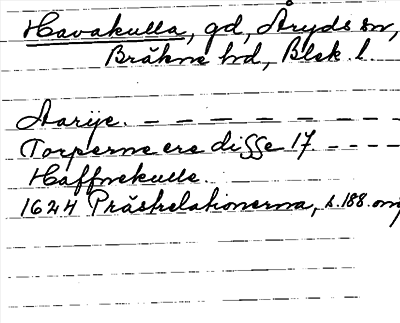 Havakulla, gd, Åryds sn,
Bräkne hd, Blek. l.
Aarije. – – – – – – –
Torperne ere disse 17. – – – –
Haffnekulle.
1624 Prästrelationerna, s. 188. omg